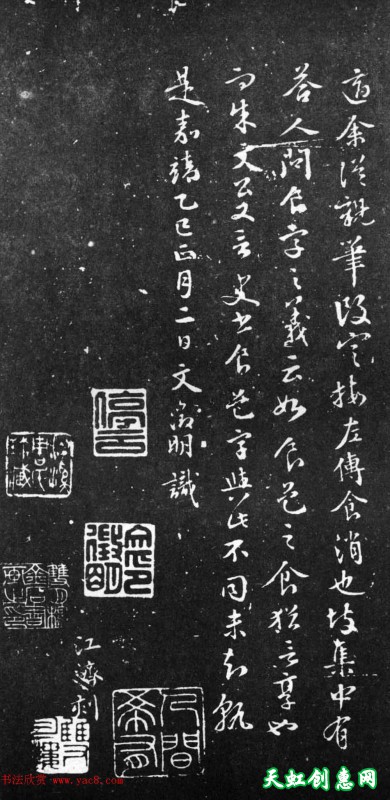 適余從親筆改定按左傳食消也坡集中有
答人問食字之義云如食邑之食猶言享也
而朱文公又言史書食邑字與此不同未知孰
是嘉靖乙巳正月二日文徵明識
停云
人間希有
书法欣赏 www.yac8.com
天虹创意网